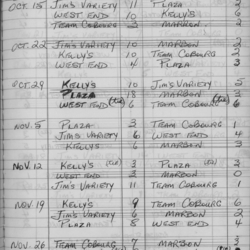 OCT. 15 JIM'S VARIETY 11 PLAZA
WEST END 10 KELLY'S
TEAM COBOURG MARBON
OCT. 22 JIM'S VARIETY 10 MARBON 2
KELLY'S 10 TEAM COBOURG
WEST END 4 PLAZA 3
OCT. 29 KELLY'S 10 JIM'S VARIETY 5
PLAZA MARBON 3
WEST END 6 TEAM COBOURG 6
NOV. 5 PLAZA 2 TEAM COBOURG 1
JIM'S VARIETY 6 WEST END 4
KELLY'S 6 MARBON 3
NOV. 12 KELLY'S 3 PLAZA 3
WEST END 2 MARBON 0
JIM'S VARIETY 11 TEAM COBOURG
NOV. 19 KELLY'S 9 TEAM COBOURG 6
JIM'S VARIETY 6 MARBON 2
PLAZA 8 WEST END 4
NOV. 26 TEAM COBOURG 7 MARBON